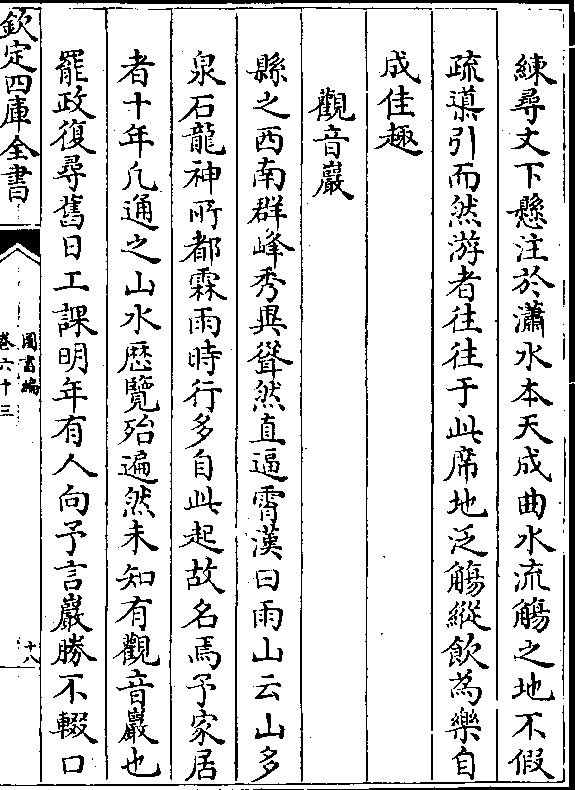 練尋丈下懸注於瀟水本天成曲水流觴之地不假
疏導引而然游者往往于此席地泛觴縱飲為樂自
成佳趣
觀音巖
縣之西南群峰秀異聳然直逼霄漢曰雨山云山多
泉石龍神所都霖雨時行多自此起故名焉予家居
者十年凡通之山水歷覽殆遍然未知有觀音巖也
罷政復尋舊日工課明年有人向予言巖勝不輟口
欽定四庫全書
圖書編
卷六十三
十八